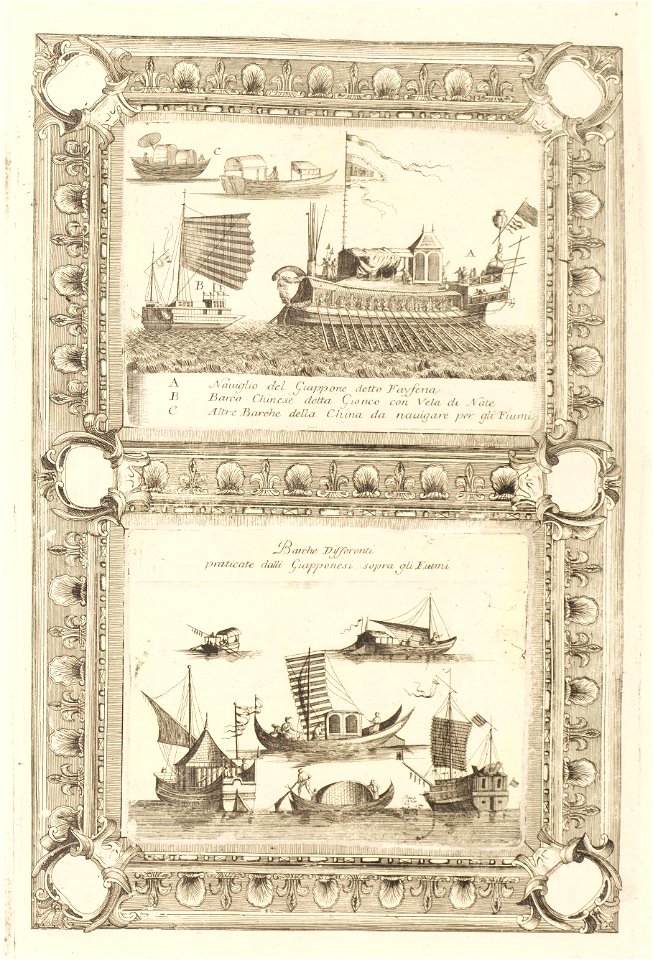 C
A
B
A Nauiglio del Giappone detto Fayfena
B Barca Chinese detta Cionco con Vela di Nate
C Altre Barche della China da nauigare per gli Fiumi
Barche Differenti
praticate dalli Giapponesi sopra gli Fiumi